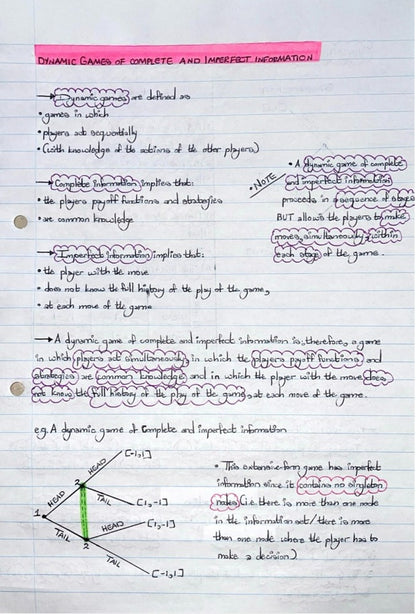 DYNAMIC GAMES OF COMPLETE AND IMPERFECT INFORMATION
→ Dynamic games are defined as
• games in which
• players act sequentially
• (with knowledge of the actions of the other players)
→ Complete information implies that:
• the players payoff functions and strategies
• are common knowledge
• NOTE
• A dynamic game of complete
and imperfect information
proceeds in a sequence of stages
BUT allows the players to make
moves simultaneously within
each stage of the game.
→ Imperfect information implies that:
• the player with the move
• does not know the full history of the play of the game,
• at each move of the game
→ A dynamic game of complete and imperfect information is, therefore, a game
in which players act simultaneously, in which the players payoff functions and
strategies are common knowledge and in which the player with the move does
not know the full history of the play of the game, at each move of the game.
e.g. A dynamic game of Complete and imperfect information
1
HEAD
TAIL
2
HEAD
[-1,1]
TAIL
[1,-1]
2
HEAD
[1,-1]
TAIL
[-1,1]
• This extensive-form game has imperfect
information since it contains no singleton
nodes (i.e. there is more than one node
in the information set / there is more
than one node where the player has to
make a decision)